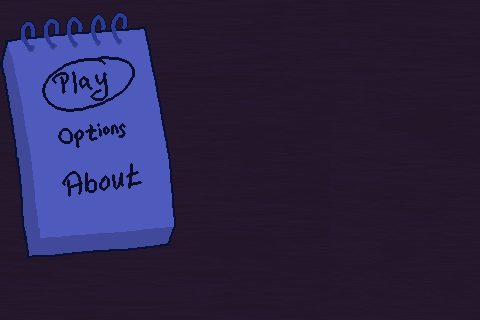 Play
Options
About